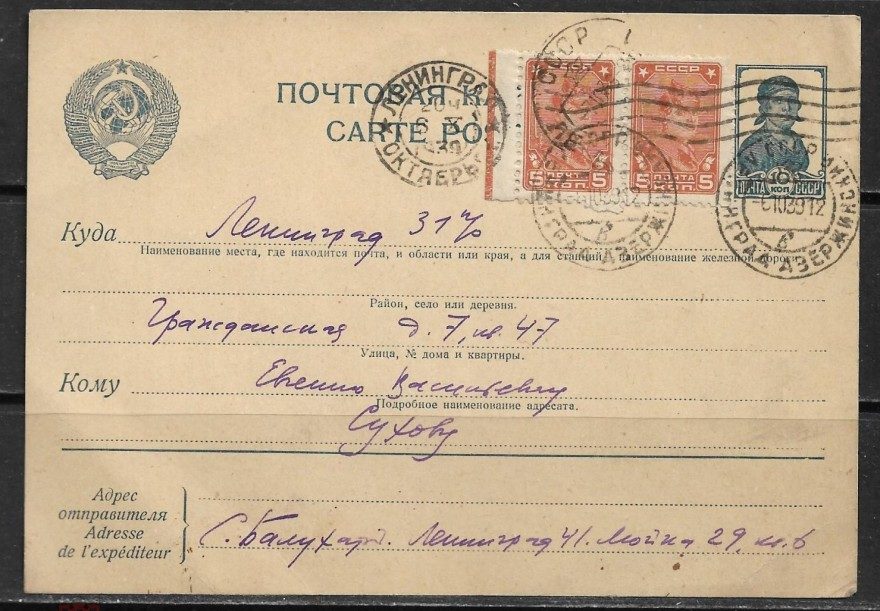 ПОЧТОВАЯ КА
CARTE PO
СССР
ПОЧТА
5 КОП. 5
СССР
ПОЧТА
5 КОП. 5
10
ПОЧТА КОП СССР
ЛЕНИНГРАД
20Ч
6 X
39
ОКТЯБРЬ
СССР
ЛЕНИНГРАД ДЗЕРЖИНСКИЙ
-6.10.39 12
Куда Ленинград 31
Наименование места, где находится почта, и области или края, а для станций наименование железной дороги
Район, село или деревня.
Гражданская д. 7, кв. 47
Улица, № дома и квартиры.
Кому Евгению Васильевичу
Подробное наименование адресата.
Сухову
Адрес
отправителя
Adresse
de l'expéditeur
С. Балухат. Ленинград 41. Мойка 29, кв. 6